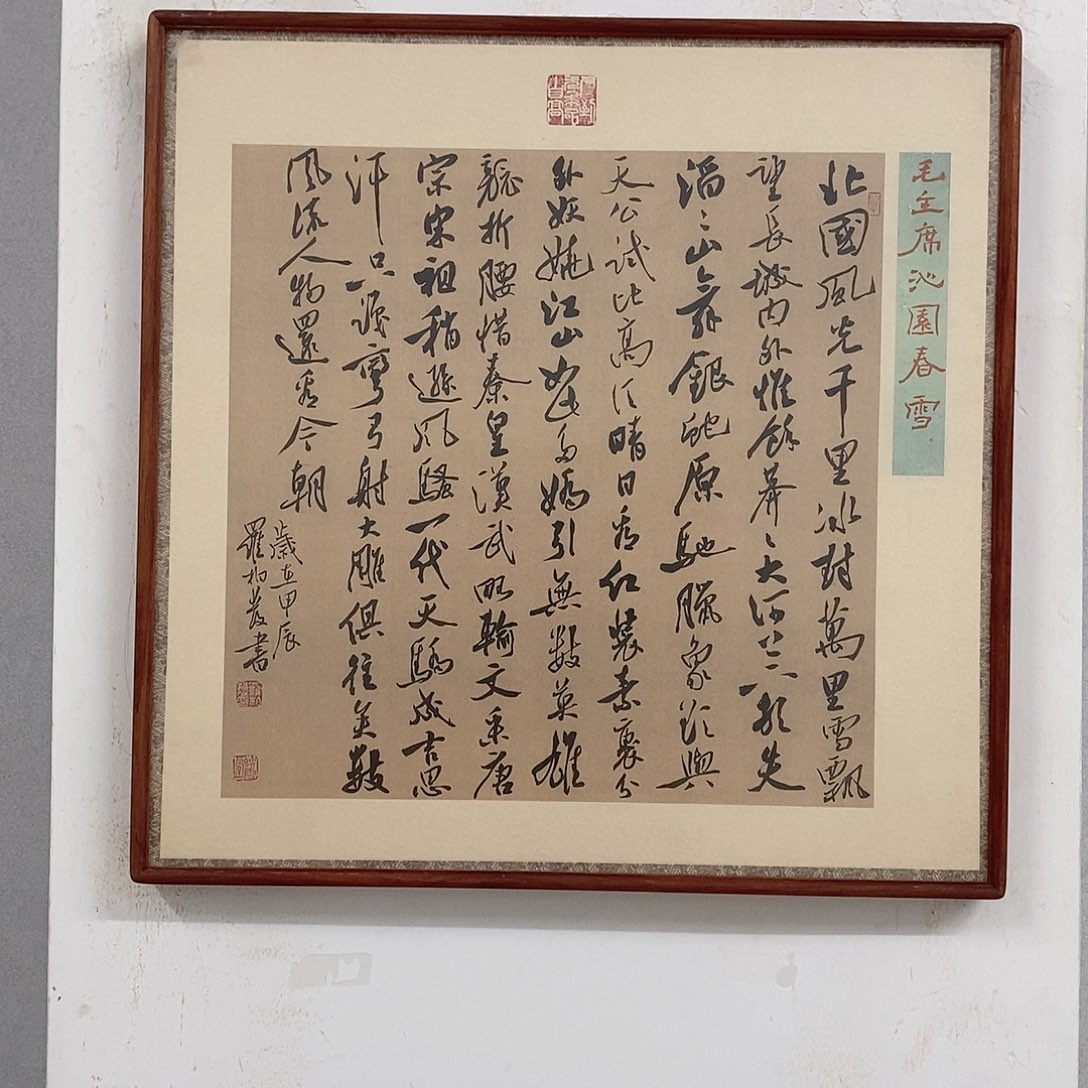 毛主席沁園春雪
北國風光千里冰封萬里雪飄
望長城内外惟餘莽〻大河上下頓失
滔〻山舞銀蛇原馳臘象欲與
天公試比高須晴日看紅裝素裹分
外妖嬈江山如此多嬌引無數英雄
競折腰惜秦皇漢武略輸文采唐
宗宋祖稍遜風騷一代天驕成吉思
汗只識彎弓射大雕俱往矣數
風流人物還看今朝
歲在甲辰
羅柏書